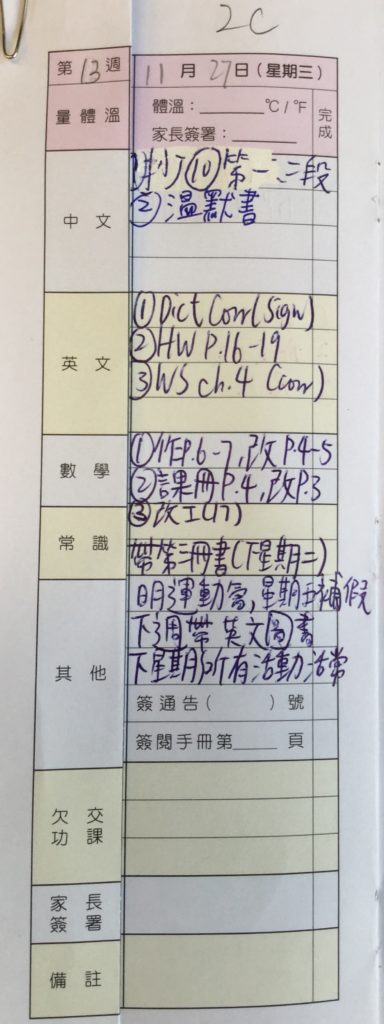 2C
第13週 11月27日(星期三)
量體溫 體溫:______°C/°F 完成
家長簽署:______
中文 ①抄J⑩第一、二段
②溫默書
英文 ①Dict Corr(Sign)
②HW P.16-19
③WS ch.4 (corr)
數學 ①作P.6-7,改P.4-5
②課冊P.4,改P.3
③改工(17)
常識 帶第三冊書(下星期二)
其他 明天運動會,星期五補假
下週帶英文圖書
下星期所有活動活常
簽通告( )號
簽閱手冊第____頁
欠交功課
家長簽署
備註